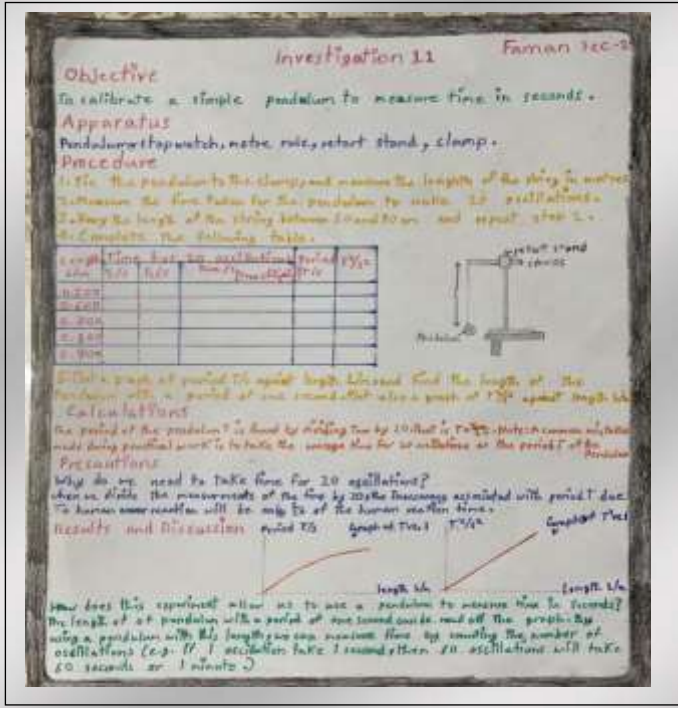 Investigation 1.1
Faman Sec-2
Objective
To calibrate a simple pendulum to measure time in seconds.
Apparatus
Pendulum, stopwatch, metre rule, retort stand, clamp.
Procedure
1. Tie the pendulum to the clamp, and measure the length of the string in metres
2. Measure the time taken for the pendulum to make 20 oscillations.
3. Vary the length of the string between 50 and 90 cm and repeat step 2.
4. Complete the following table.
Length Time for 20 oscillations Period
retort stand
Pendulum
0.600
0.900
graph of period T/s against length L/m and find the length of the
pendulum with a period of one second. Plot also a graph of against length
Calculations
The period of the pendulum T is found by dividing by 20 that is Note: A common mistake
made during practical work is to take the average time for 20 oscillations as the period T of the
Pendulum
Precautions
Why do we need to take time for 20 oscillations?
when we divide the measurements of the time by 20 the associated with period T due
To human reaction will be only of the human reaction time.
Results and Discussion
Period T/s Graph of T vs. l
length L/m
Graph of
Length L/m
How does this experiment allow us to use a pendulum to measure time in seconds?
The length of a pendulum with a period of one second can be read off the graph. By
using a pendulum with this length, we can measure time by counting the number of
oscillations (e.g. If 1 oscillation take 1 second, then 60 oscillations will take
60 seconds or 1 minute.)